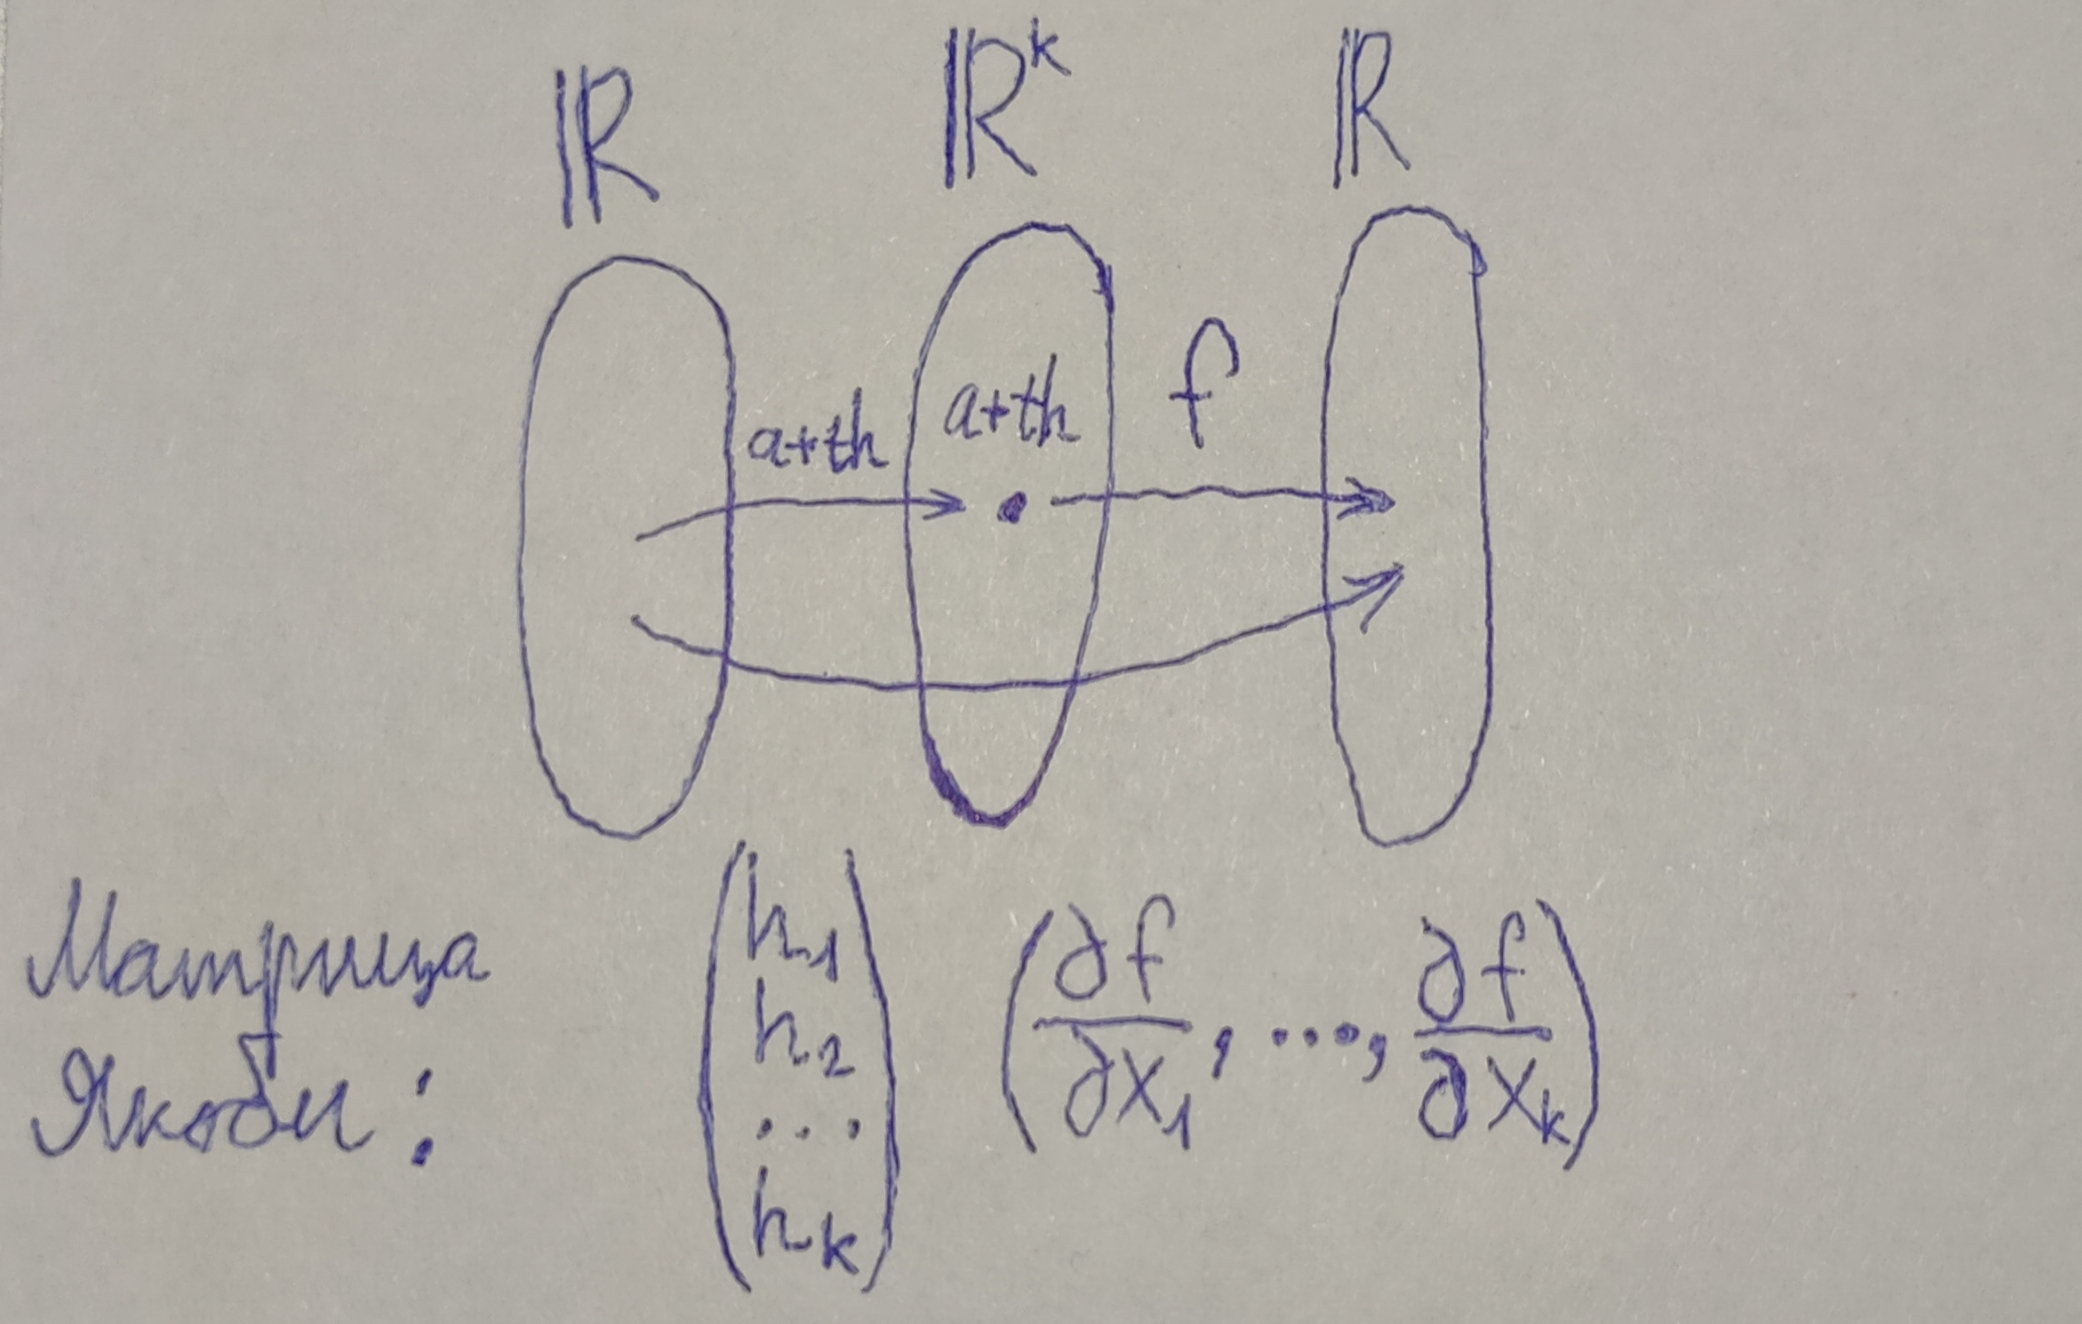 ℝ ℝᵏ ℝ
a+th a+th f
Матрица
Якоби:
(h₁
h₂
...
hₖ)
(∂f/∂x₁, ..., ∂f/∂xₖ)